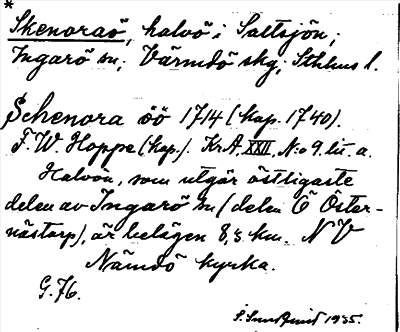 *
Skenoraö, halvö i Saltsjön;
Ingarö sn; Värmdö skg; Sthlms l.
Schenora öö 1714 (kop. 1740).
F. W. Hoppe (kop.). Kr A. XXII. N:o 9. lit. a.
Halvön, som utgör östligaste
delen av Ingarö sn (delen Ö Öster-
nästorp), är belägen 8,5 km. NV
Nämdö kyrka.
G. 76.
S. Sundquist 1935.